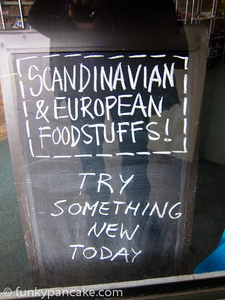 SCANDINAVIAN
& EUROPEAN
FOODSTUFFS!
TRY
SOMETHING
NEW
TODAY
© funkypancake.com